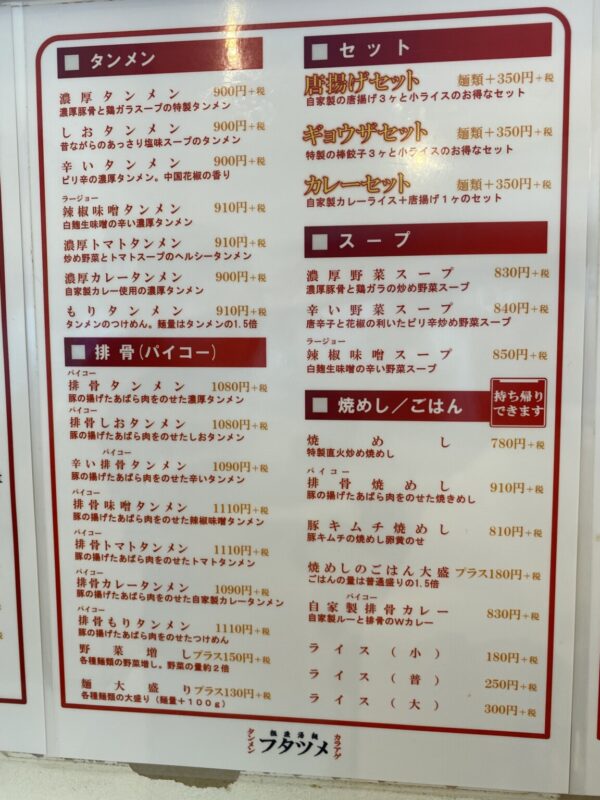 タンメン
濃厚タンメン 900円+税
濃厚豚骨と鶏ガラスープの特製タンメン
しおタンメン 900円+税
昔ながらのあっさり塩味スープのタンメン
辛いタンメン 900円+税
ピリ辛の濃厚タンメン。中国花椒の香り
ラージョー
辣椒味噌タンメン 910円+税
白麹生味噌の辛い濃厚タンメン
濃厚トマトタンメン 910円+税
炒め野菜とトマトスープのヘルシータンメン
濃厚カレータンメン 900円+税
自家製カレー使用の濃厚タンメン
もりタンメン 910円+税
タンメンのつけめん。麺量はタンメンの1.5倍
排骨(パイコー)
パイコー
排骨タンメン 1080円+税
豚の揚げたあばら肉をのせた濃厚タンメン
パイコー
排骨しおタンメン 1080円+税
豚の揚げたあばら肉をのせたしおタンメン
パイコー
辛い排骨タンメン 1090円+税
豚の揚げたあばら肉をのせた辛いタンメン
パイコー
排骨味噌タンメン 1110円+税
豚の揚げたあばら肉をのせた辣椒味噌タンメン
パイコー
排骨トマトタンメン 1110円+税
豚の揚げたあばら肉をのせたトマトタンメン
パイコー
排骨カレータンメン 1090円+税
豚の揚げたあばら肉をのせた自家製カレータンメン
パイコー
排骨もりタンメン 1110円+税
豚の揚げたあばら肉をのせたつけめん
野菜増し プラス150円+税
各種麺類の野菜増し。野菜の量約2倍
麺大盛り プラス130円+税
各種麺類の大盛り(麺量+100g)
セット
唐揚げセット 麺類+350円+税
自家製の唐揚げ3ヶと小ライスのお得なセット
ギョウザセット 麺類+350円+税
特製の棒餃子3ヶと小ライスのお得なセット
カレーセット 麺類+350円+税
自家製カレーライス+唐揚げ1ヶのセット
スープ
濃厚野菜スープ 830円+税
濃厚豚骨と鶏ガラの炒め野菜スープ
辛い野菜スープ 840円+税
唐辛子と花椒の利いたピリ辛炒め野菜スープ
ラージョー
辣椒味噌スープ 850円+税
白麹生味噌の辛い野菜スープ
焼めし/ごはん
持ち帰り
できます
焼めし 780円+税
特製直火炒め焼めし
パイコー
排骨焼めし 910円+税
豚の揚げたあばら肉をのせた焼きめし
豚キムチ焼めし 810円+税
豚キムチの焼めし卵黄のせ
焼めしのごはん大盛 プラス180円+税
ごはんの量は普通盛りの1.5倍
パイコー
自家製排骨カレー 830円+税
自家製ルーと排骨のWカレー
ライス(小) 180円+税
ライス(普) 250円+税
ライス(大) 300円+税
タンメン
フタツメ
カラアゲ